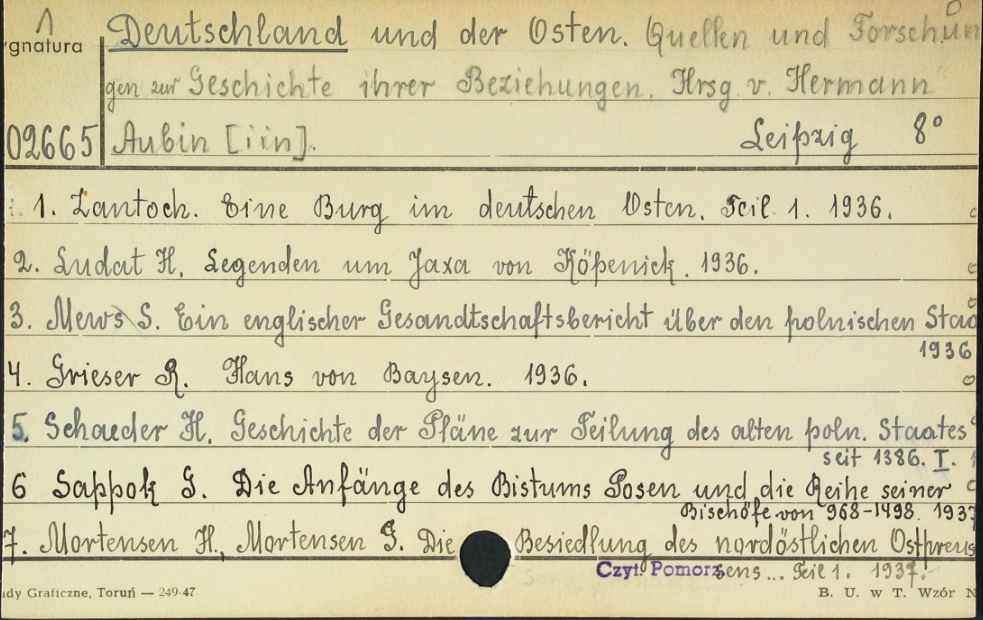 1
ygnatura
Deutschland und der Osten. Quellen und Forschun
gen zur Geschichte ihrer Beziehungen. Hrsg. v. Hermann
02665 Aubin [i in]. Leipzig 8°
1. Zantoch. Eine Burg im deutschen Osten. Teil 1. 1936.
2. Ludat H. Legenden um Jaxa von Köpenick. 1936.
3. Mews S. Ein englischer Gesandtschaftsbericht über den polnischen Staa
1936
4. Grieser R. Hans von Baysen. 1936.
5. Schaeder H. Geschichte der Pläne zur Teilung des alten poln. Staates
seit 1386. I.
6 Sappok G. Die Anfänge des Bistums Posen und die Reihe seiner
Bischöfe von 968-1498. 1937
7. Mortensen H., Mortensen G. Die Besiedlung des nordöstlichen Ostpreus
Czyt. Pomorz. sens... Teil 1. 1937.
ady Graficzne, Toruń — 249-47 B. U. w T. Wzór N